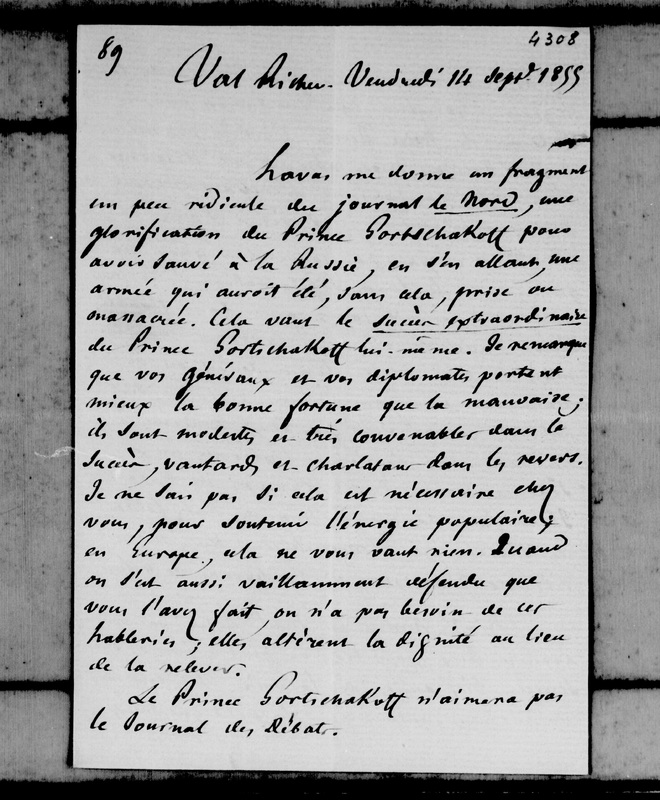 89
4308
Val Richer. Vendredi 14 Sept. 1855
havas me donne un fragment
un peu ridicule du journal le Nord, une
glorification du Prince Gortschakoff pour
avoir sauvé à la Russie, en s'en allant, une
armée qui auroit été, sans cela, prise ou
massacrée. Cela vaut le succès extraordinaire
du Prince Gortschakoff lui-même. Je remarque
que vos généraux et vos diplomates portent
mieux la bonne fortune que la mauvaise;
ils sont modestes et très convenables dans le
succès, vantards et charlatans dans les revers.
Je ne sais pas si cela est nécessaire chez
vous, pour soutenir l'énergie populaire;
en Europe, cela ne vous vaut rien. Quand
on s'est aussi vaillamment défendu que
vous l'avez fait, on n'a pas besoin de ces
hableries; elles altèrent la dignité au lieu
de la relever.
Le Prince Gortschakoff n'aimera pas
le Journal des Débats.